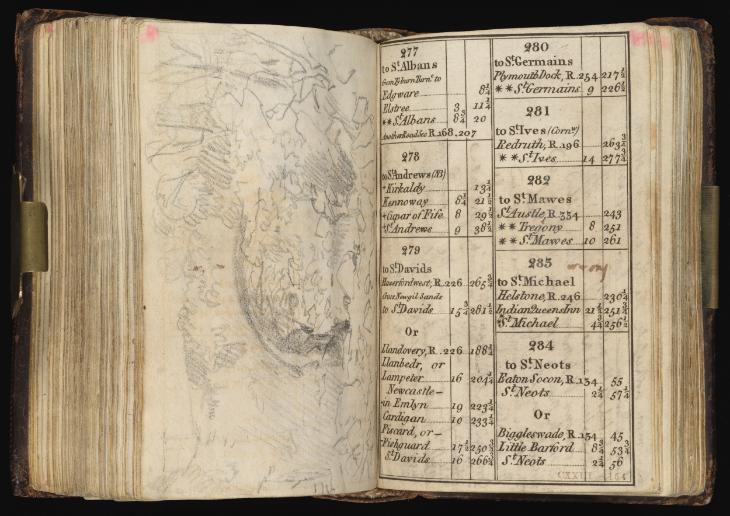 277
to St. Albans
from Tyburn Turnt. to
Edgware 8 1/4
Elstree 3 11 1/4
** St. Albans 8 3/4 20
Another Road See R.168.207
278
to St. Andrews (NB)
* Kirkaldy 13 1/4
Kennoway 8 1/4 21 1/2
* Cupar of Fife 8 29 1/2
* St. Andrews 9 38 1/2
279
to St. Davids
Haverfordwest, R.226 265 3/4
Cross Newgil Sands
to St. Davids 15 3/4 281 1/2
Or
Llandovery, R.226 188 1/4
Llanbedr, or
Lampeter 16 204 1/4
Newcastle-
in Emlyn 19 223 1/4
Cardigan 10 233 1/4
Piscard, or-
Fishguard 17 1/2 250 3/4
St. Davids 16 266 3/4
280
to St. Germains
Plymouth Dock, R.254 217 1/2
** St. Germains 9 226 1/2
281
to St. Ives (Cornw.)
Redruth, R.196 263 3/4
** St. Ives 14 277 3/4
282
to St. Mawes
St. Austle, R.334 243
** Tregony 8 251
** St. Mawes 10 261
283
to St. Michael
Helstone, R.246 230 1/4
Indian Queens Inn 21 1/2 251 3/4
* St. Michael 4 3/4 256 1/2
284
to St. Neots
Eaton Socon, R.134 55
St. Neots 2 1/4 57 1/4
Or
Biggleswade, R.134 45
Little Barford 8 3/4 53 3/4
St. Neots 2 1/4 56